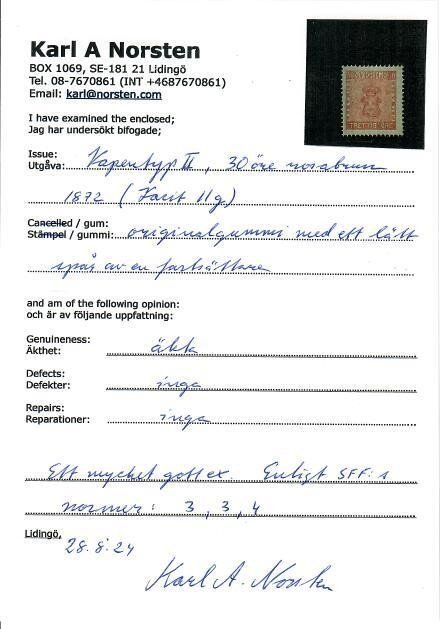 Karl A Norsten
BOX 1069, SE-181 21 Lidingö
Tel. 08-7670861 (INT +4687670861)
Email: karl@norsten.com
I have examined the enclosed;
Jag har undersökt bifogade;
Issue:
Utgåva: Vapentyp II, 30 öre rosabrun
1872 (Facit 11g)
Cancelled / gum:
Stämpel / gummi: originalgummi med ett lätt
spår av en fastsättare
and am of the following opinion:
och är av följande uppfattning:
Genuineness:
Äkthet: äkta
Defects:
Defekter: inga
Repairs:
Reparationer: inga
Ett mycket gott ex. Enligt SFF:s
normer: 3, 3, 4
Lidingö,
28.8.24
Karl A. Norsten